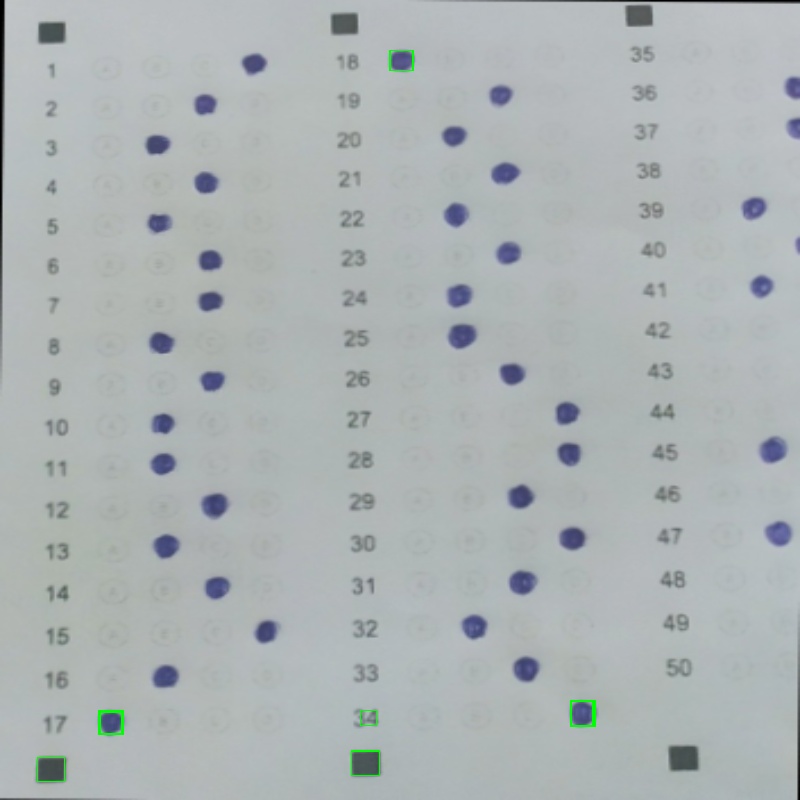 1
2
3
4
5
6
7
8
9
10
11
12
13
14
15
16
17
18
19
20
21
22
23
24
25
26
27
28
29
30
31
32
33
34
35
36
37
38
39
40
41
42
43
44
45
46
47
48
49
50